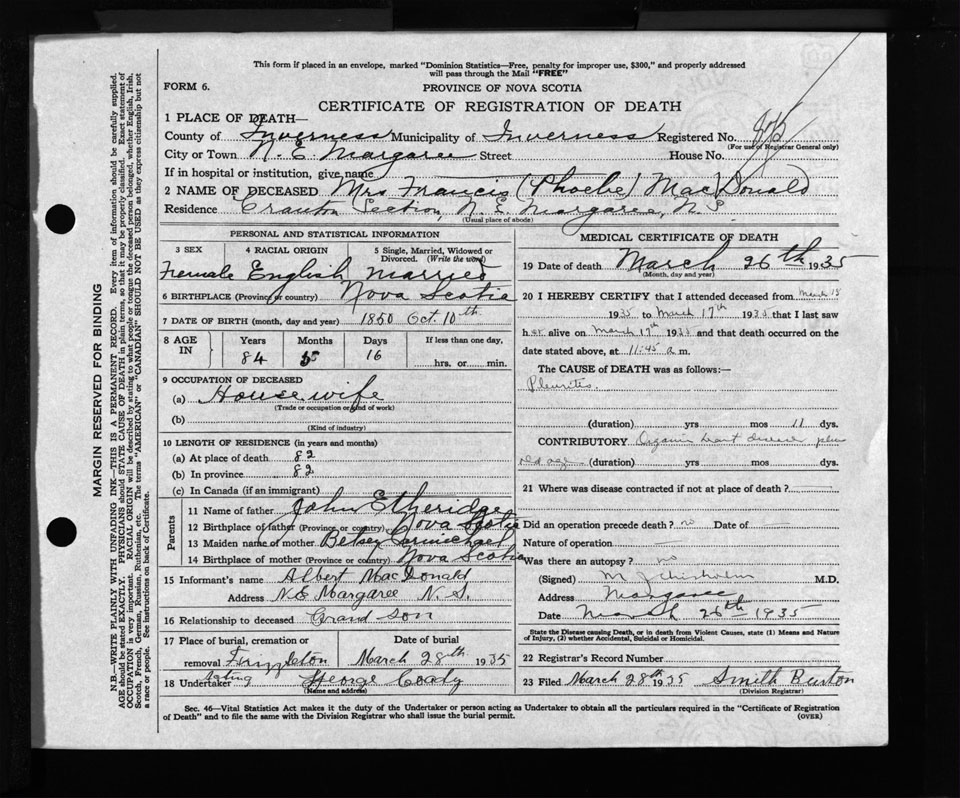 This form if placed in an envelope, marked "Dominion Statistics—Free, penalty for improper use, $300," and properly addressed
will pass through the Mail "FREE"
FORM 6.
PROVINCE OF NOVA SCOTIA
CERTIFICATE OF REGISTRATION OF DEATH
1 PLACE OF DEATH—
County of Inverness Municipality of Inverness Registered No.
(For use of Registrar General only)
City or Town N. E. Margaree Street House No.
If in hospital or institution, give name
2 NAME OF DECEASED Mrs Francis (Phoebe) MacDonald
Residence Section, N. E. Margaree, N. S.
(Usual place of abode)
PERSONAL AND STATISTICAL INFORMATION
3 SEX 4 RACIAL ORIGIN 5 Single, Married, Widowed or
Divorced. (Write the word)
Female English married
6 BIRTHPLACE (Province or country) Nova Scotia
7 DATE OF BIRTH (month, day and year) 1850 Oct. 10th
8 AGE IN Years Months Days If less than one day,
84 5 16 hrs. or min.
9 OCCUPATION OF DECEASED
(a) Housewife
(Trade or occupation or kind of work)
(b)
(Kind of industry)
10 LENGTH OF RESIDENCE (in years and months)
(a) At place of death 82
(b) In province 82
(c) In Canada (if an immigrant)
Parents
11 Name of father John Etheridge
12 Birthplace of father (Province or country) Nova Scotia
13 Maiden name of mother Betsey Carmichael
14 Birthplace of mother (Province or country) Nova Scotia
15 Informant's name Albert MacDonald
Address N.E Margaree N. S.
16 Relationship to deceased Grand son
17 Place of burial, cremation or Date of burial
removal Frizzleton March 28th 1935
18 Undertaker Acting George Coady
(Name and address)
MEDICAL CERTIFICATE OF DEATH
19 Date of death March 26th 1935
(Month, day and year)
20 I HEREBY CERTIFY that I attended deceased from March 15
1935 to March 17th 1935 that I last saw
her alive on March 17th 1935 and that death occurred on the
date stated above, at 11:45 a m.
The CAUSE of DEATH was as follows:—
Pleuritis
(duration) yrs mos 11 dys.
CONTRIBUTORY Organic heart disease plus
old age (duration) yrs mos dys.
21 Where was disease contracted if not at place of death?
Did an operation precede death? no Date of
Nature of operation
Was there an autopsy? no
(Signed) M J Chisholm M.D.
Address Margaree
Date March 26th 1935
State the Disease causing Death, or in death from Violent Causes, state (1) Means and Nature
of Injury, (2) whether Accidental, Suicidal or Homicidal.
22 Registrar's Record Number
23 Filed March 28th 1935 Smith Burton
(Division Registrar)
Sec. 46—Vital Statistics Act makes it the duty of the Undertaker or person acting as Undertaker to obtain all the particulars required in the "Certificate of Registration
of Death" and to file the same with the Division Registrar who shall issue the burial permit.
(OVER)
MARGIN RESERVED FOR BINDING
N.B.—WRITE PLAINLY WITH UNFADING INK—THIS IS A PERMANENT RECORD. Every item of information should be carefully supplied.
AGE should be stated EXACTLY. PHYSICIANS should STATE CAUSE OF DEATH in plain terms, so that it may be properly classified. Exact statement of
OCCUPATION is very important. RACIAL ORIGIN will be described by stating to what people or tongue the deceased person belonged, whether English, Irish,
Scotch, French, German, Russian, Ruthenian, etc. The terms "AMERICAN" or "CANADIAN" SHOULD NOT BE USED as they express citizenship but not
a race or people. See instructions on back of Certificate.